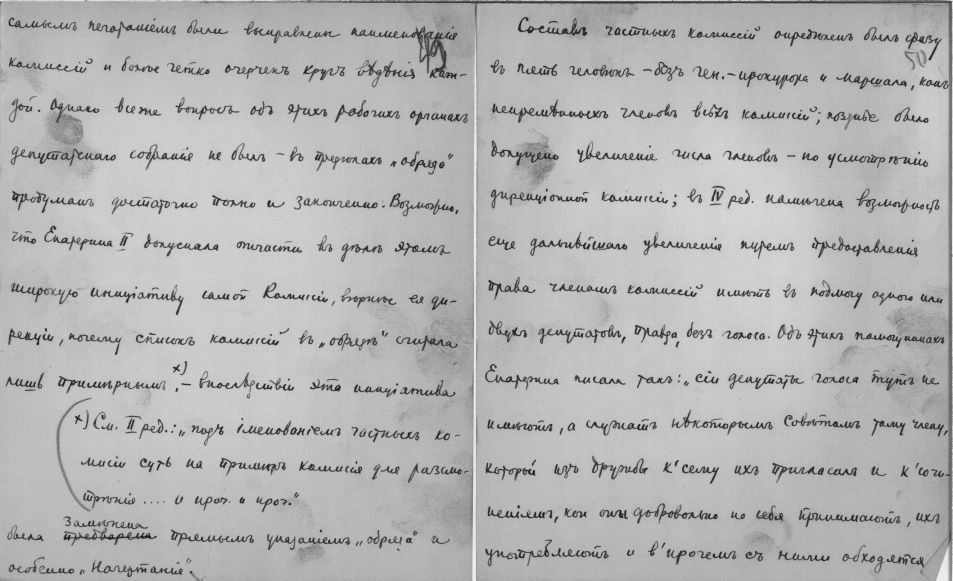 самымъ печатаніемъ были выправлены наименованія
49
комиссій и болѣе четко очерченъ кругъ вѣдѣнія каж-
дой. Однако все же вопросъ объ этихъ рабочихъ органахъ
депутатскаго собранія не былъ – въ предѣлахъ „обряда"
продуманъ достаточно полно и законченно. Возможно,
что Екатерина II допускала отчасти въ дѣлѣ этомъ
широкую иниціативу самой Комиссіи, вѣрнѣе ея ди-
рекціи, почему списокъ комиссій въ „обрядѣ" считала
лишь примѣрнымъ x), – впослѣдствіи эта иниціатива
x) См. II ред.: „подъ именованіемъ частныхъ ко-
мисіи суть на примѣръ комисія для разсмо-
трѣнія .... и проч. и проч."
замѣнена
была предварена прямымъ указаніемъ „обряда" и
особенно „Начертанія".
50
Составъ частныхъ комиссій опредѣленъ былъ сразу
въ пять человѣкъ – безъ ген.-прокурора и маршала, какъ
непремѣнныхъ членовъ всѣхъ комиссій; позднѣе было
допущено увеличеніе числа членовъ – по усмотрѣнію
дирекціонной комиссіи; въ IV ред. намѣчена возможность
еще дальнѣйшаго увеличенія путемъ предоставленія
права членамъ комиссій имѣть въ подмогу одного или
двухъ депутатовъ, правда, безъ голоса. Объ этихъ помощникахъ
Екатерина писала такъ: „сіи депутаты голоса тутъ не
имѣютъ, а служатъ нѣкоторымъ совѣтомъ тому члену,
который изъ дружбы к' сему ихъ пригласилъ и к' сочи-
неніямъ, кои они добровольно на себя принимаютъ, ихъ
употребляютъ и в' прочемъ съ ними обходятся